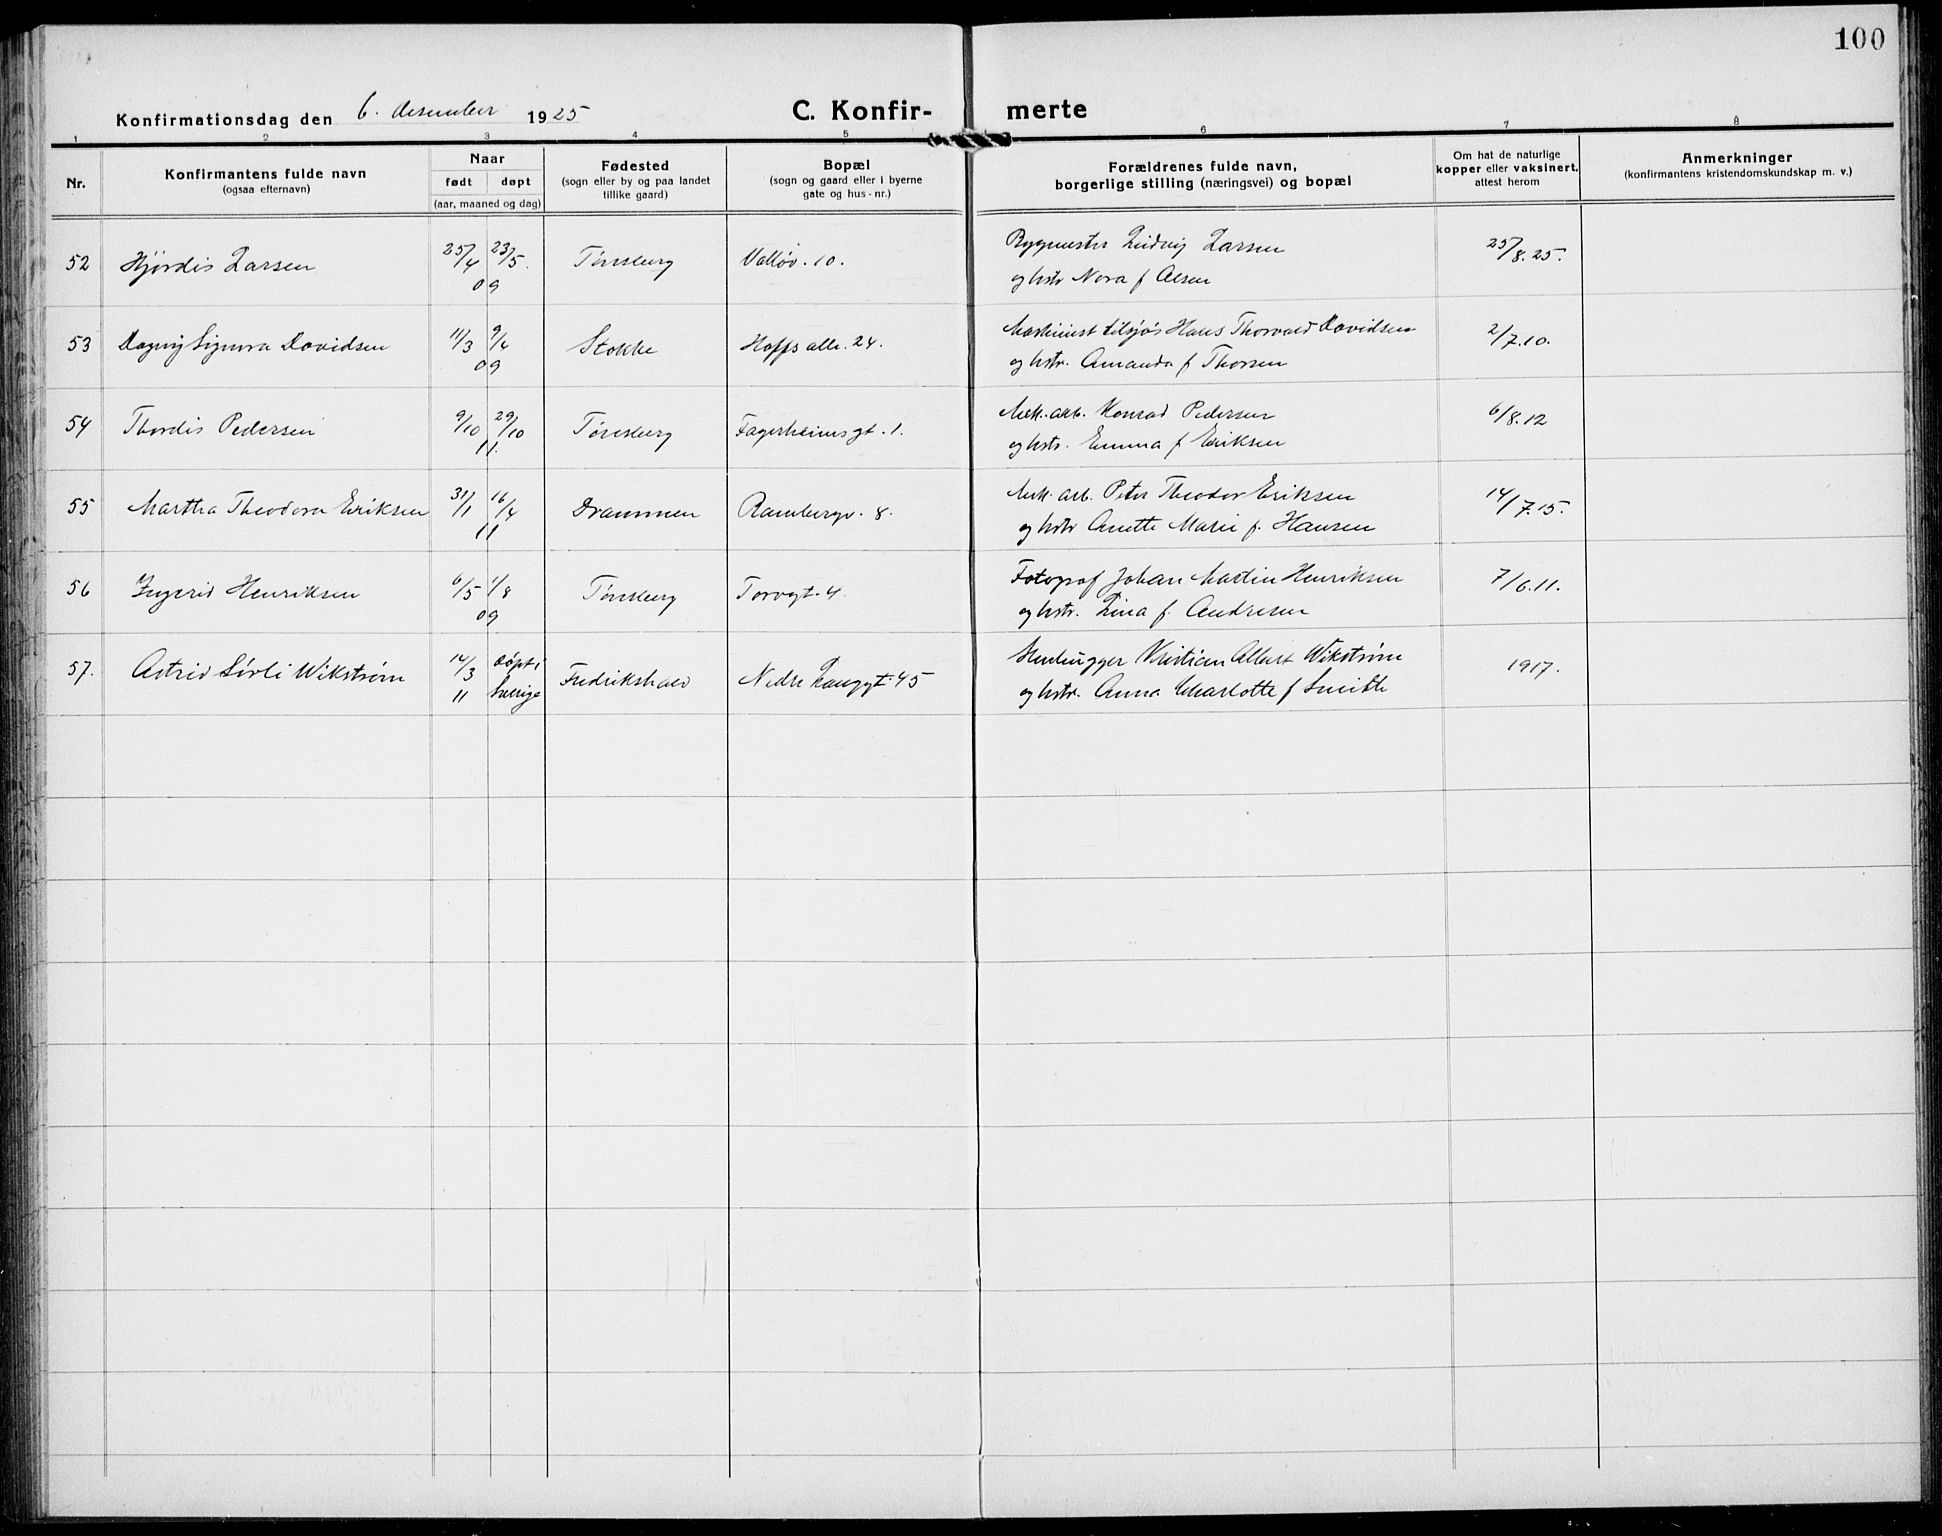 100
Konfirmationsdag den 6. desember 1925 C. Konfir- merte
1 2 3 4 5 6 7 8
Nr.
Konfirmantens fulde navn
(ogsaa efternavn)
Naar
født døpt
(aar, maaned og dag)
Fødested
(sogn eller by og paa landet
tillike gaard)
Bopæl
(sogn og gaard eller i byerne
gate og hus-nr.)
Forældrenes fulde navn,
borgerlige stilling (næringsvei) og bopæl
Om hat de naturlige
kopper eller vaksinert,
attest herom
Anmerkninger
(konfirmantens kristendomskundskap m. v.)
52 Hjørdis Larsen 25/4 23/5. 09 Tønsberg Valløv. 10. Bygmester Ludvig Larsen 25/8.25.
og hstr Nora f Olsen
53 Dagny Signora Davidsen 11/3 9/4 09 Stokke Hoffs alle. 24. Maskinist tilsjøs Hans Thorvald Davidsen 2/7.10.
og hstr. Amanda f Thorsen
54 Thordis Pedersen 9/10 29/10 11. Tønsberg Fagerheims gt. 1. Mek. arb. Konrad Pedersen 6/8.12
og hstr. Emma f Eriksen
55 Martha Theodora Eriksen 31/1 16/4 11 Drammen Rambergv. 8. Mek. arb. Peter Theodor Eriksen 14/7.15.
og hstr Anette Marie f. Hansen
56 Ingerid Henriksen 6/5 1/8 09 Tønsberg Torvgt. 4. Fotograf Johan Martin Henriksen 7/6.11.
og hstr. Lina f. Andresen
57. Astrid Sørli Wikstrøm 14/3 11 døpt i Sverige Fredrikshald Nedre Langgt. 45 Stenhugger Kristian Albert Wikstrøm 1917.
og hstr. Anna Charlotte f Smith